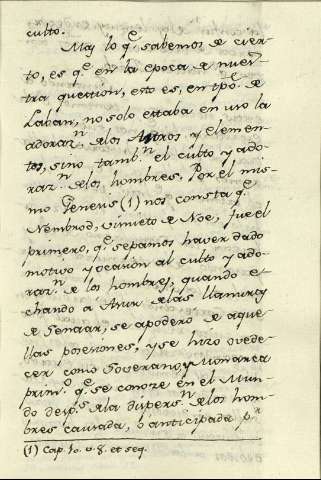 culto.
Mas lo q.e sabemos de cier-
to, es q.e en la epoca de nues-
tra question, esto es, en tpo. de
Laban, no solo estaba en uso la
adoraz.n de los Astros y elemen-
tos, sino tamb.n el culto y ado-
raz.n de los hombres. Por el mis-
mo Genesis (1) nos consta q.e
Nembrod, visnieto de Noe, fue el
primero, q.e sepamos haver dado
motivo y ocasion al culto y ado-
raz.n de los hombres, quando e-
chando á Asur de las llanuras
de Senaar, se apoderó de aque-
llas posesiones, y se hizo ovede-
cer como Soverano, y Monarca
prim.o q.e se conoze en el Mun-
do desp.s de la dispers.n de los hom-
bres causada, ó anticipada p.r
(1) Cap. 10. v. 8. et seq.